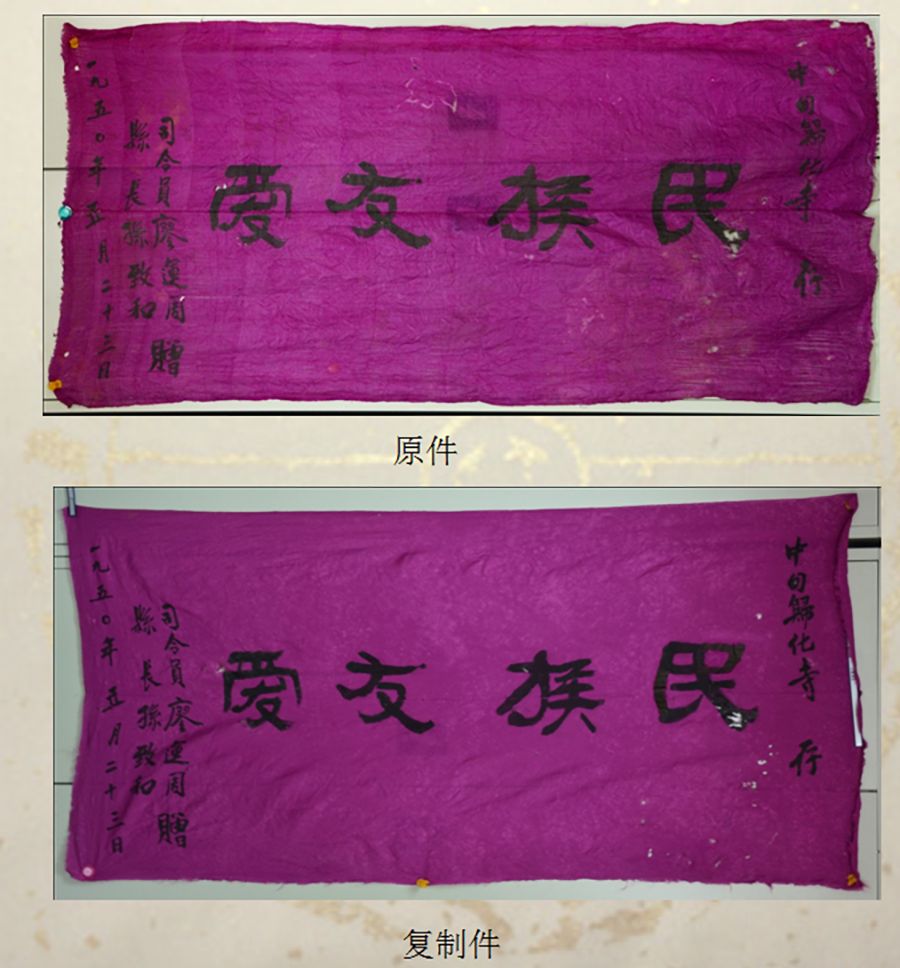 中甸歸化寺 存
民族友爱
司令員廖運周 贈
縣長孫致和
一九五〇年五月二十三日
原件
中甸歸化寺 存
民族友爱
司令員廖運周 贈
縣長孫致和
一九五〇年五月二十三日
复制件